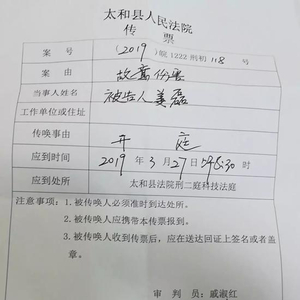 太和县人民法院
传 票
案 号 (2019)皖1222刑初118号
案 由 故意伤害
当事人姓名 被告人姜磊
工作单位或住址
传唤事由 开 庭
应到时间 2019年3月27日下午3:30时
应到处所 太和县法院刑二庭科技法庭
注意事项：1.被传唤人必须准时到达处所。
2.被传唤人应携带本传票报到。
3.被传唤人收到传票后，应在送达回证上签名或者盖
章。
审 判 员 戚淑红